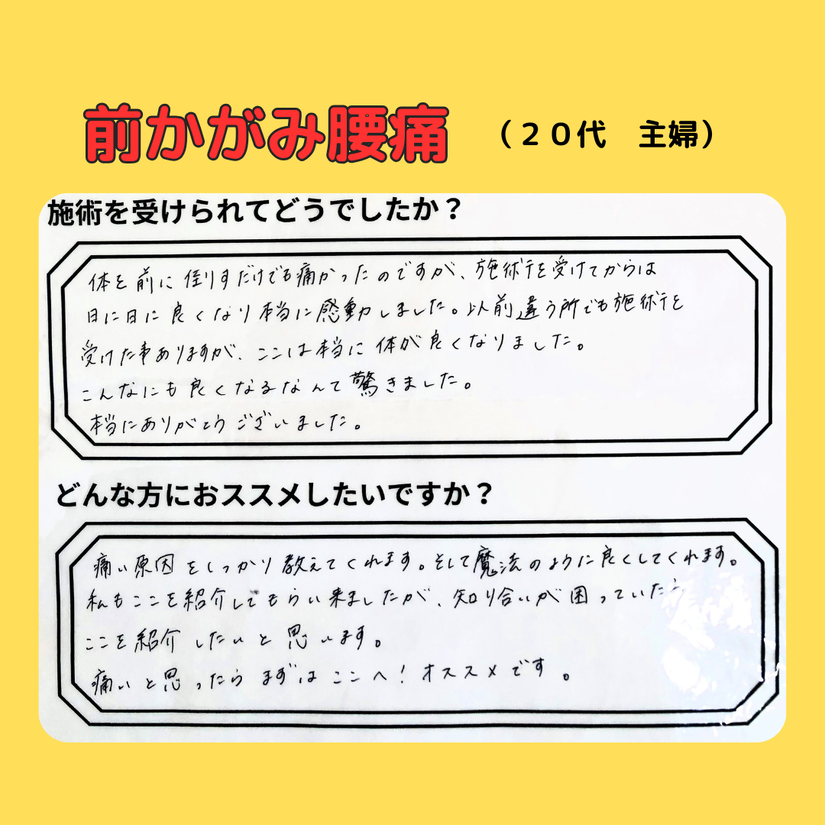 前かがみ腰痛
（２０代　主婦）
施術を受けられてどうでしたか？
体を前に倒すだけでも痛かったのですが、施術を受けてからは
日に日に良くなり本当に感動しました。以前違う所でも施術を
受けた事ありますが、ここは本当に体が良くなりました。
こんなにも良くなるなんて驚きました。
本当にありがとうございました。
どんな方におススメしたいですか？
痛い原因をしっかり教えてくれます。そして魔法のように良くしてくれます。
私もここを紹介してもらい来ましたが、知り合いが困っていたら
ここを紹介したいと思います。
痛いと思ったらまずはここへ！オススメです。